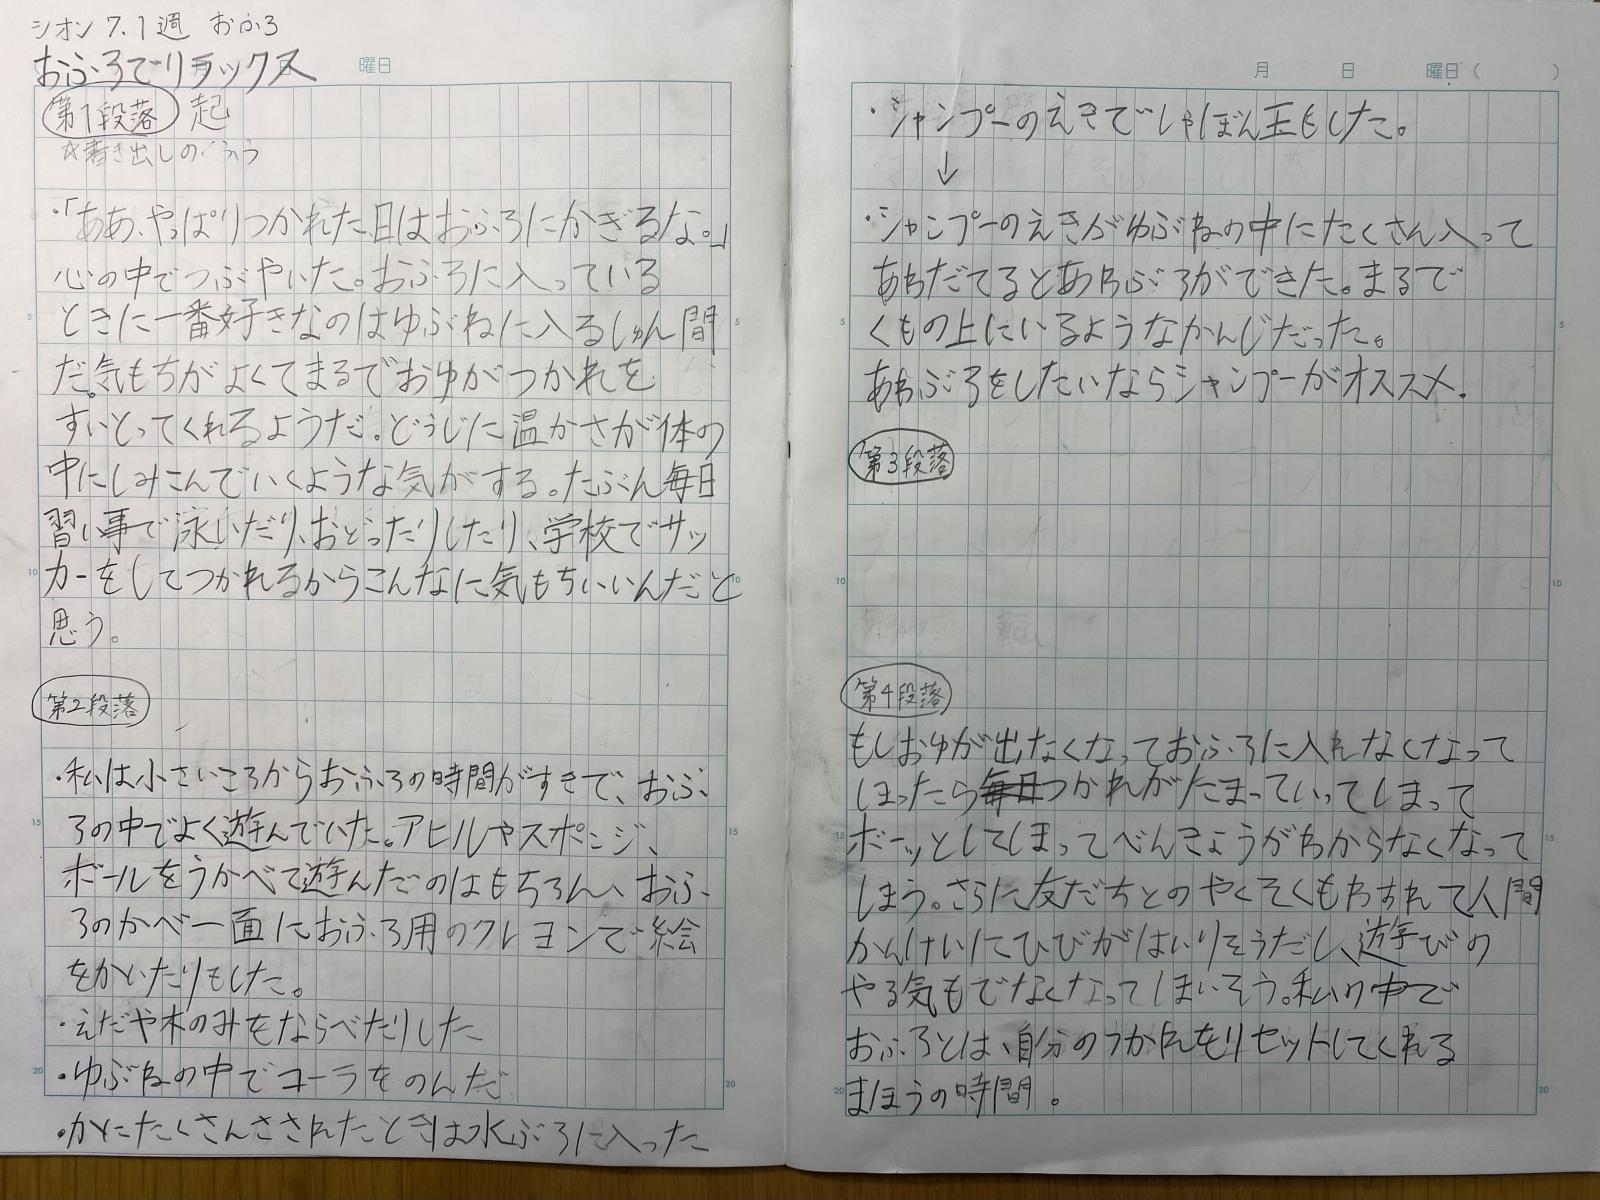 シオン 7.1週 おふろ
おふろでリラックス
曜日
第1段落 起
☆書き出しのくふう
・「ああ、やっぱりつかれた日はおふろにかぎるな。」
心の中でつぶやいた。おふろに入っている
ときに一番好きなのはゆぶねに入るしゅん間
だ。気もちがよくてまるでおゆがつかれを
すいとってくれるようだ。どうじに温かさが体の
中にしみこんでいくような気がする。たぶん毎日
習い事で泳いだり、おどったりしたり、学校でサッ
カーをしてつかれるからこんなに気もちいいんだと
思う。
第2段落
・私は小さいころからおふろの時間がすきで、おふ
ろの中でよく遊んでいた。アヒルやスポンジ、
ボールをうかべて遊んだのはもちろん、おふ
ろのかべ一面におふろ用のクレヨンで絵
をかいたりもした。
・えだや木のみをならべたりした
・ゆぶねの中でコーラをのんだ
・かにたくさんさされたときは水ぶろに入った
月 日 曜日( )
・シャンプーのえきでしゃぼん玉もした。
↓
・シャンプーのえきがゆぶねの中にたくさん入って
あわだてるとあわぶろができた。まるで
くもの上にいるようなかんじだった。
あわぶろをしたいならシャンプーがオススメ.
第3段落
第4段落
もしおゆが出なくなっておふろに入れなくなって
しまったら毎日つかれがたまっていってしまって
ボーッとしてしまってべんきょうがわからなくなって
しまう。さらに友だちとのやくそくもわすれて人間
かんけいにひびがはいりそうだし、遊びの
やる気もでなくなってしまいそう。私の中で
おふろとは、自分のつかれをリセットしてくれる
まほうの時間。